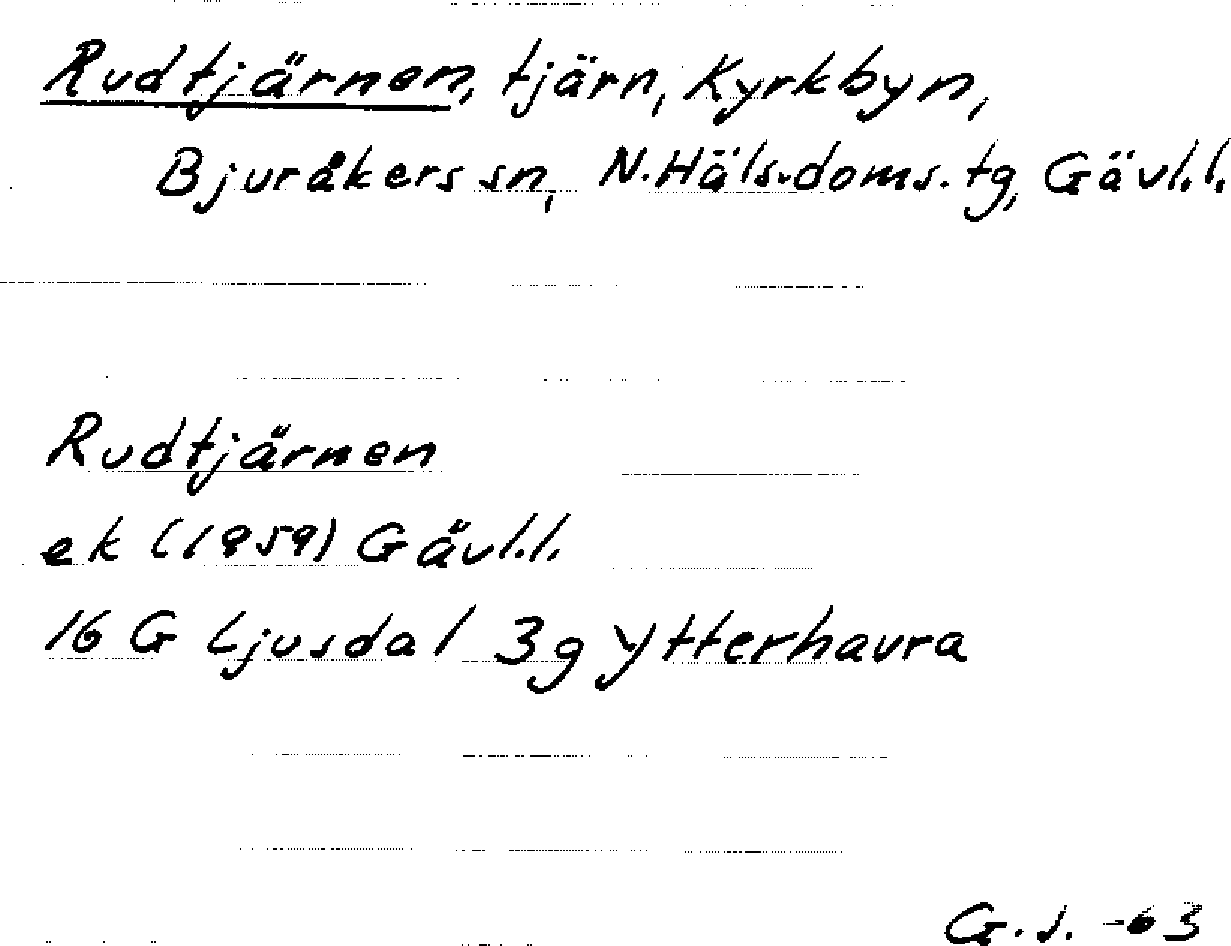 Rudtjärnen, tjärn, Kyrkbyn,
Bjuråkers sn, N. Häls. doms. tg, Gävl.l.
Rudtjärnen
ek (1959) Gävl.l.
16 G Ljusdal 3g Ytterhavra
G.J. -63